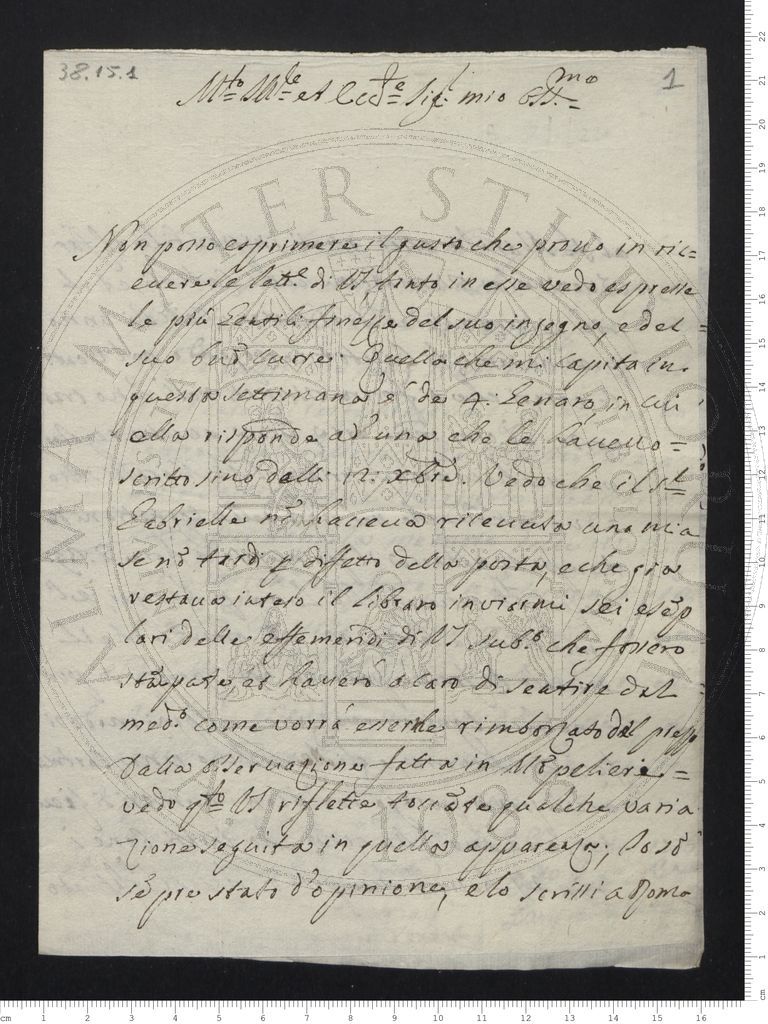 38.15.1
1
M.to Ill.re et Ecc.te Sig.r mio Oss.mo
Non posso esprimere il gusto che prouo in ric=
euere le lett.e di VS tanto in esse vedo espresse
le più gentili finezze del suo ingegno, e del
suo Quella che mi capita in
questa settimana è de 4. Genaro, in cui
ella risponde ad una che le haueuo=
scritto sino dalli 12. xbre. Vedo che il S.r
Gabrielle nō haueua riceuuta una mia
se nō tardi p diffetto della posta, e che già
restaua inteso il libraro inviarmi sei esēp
lari delle effemeridi di VS sub.o che fossero
stāpate, et hauerò a caro di sentire dal
med.o come vorrà essere rimborzato del prezzo
Dalla osseruazione fatta in Mōpelieri=
vedo q.to VS riflette toccāte qualche varia
zione seguita in quella apparenza; Io sō
sēpre stato d'opinione, e lo scrissi a Roma
ALMA MATER STUDIORUM
A.D. 1088